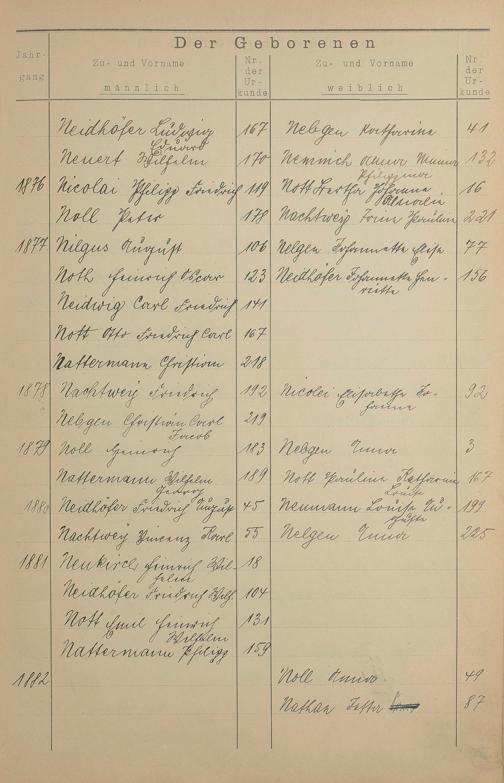 Der Geborenen
Jahr-
gang
Zu- und Vorname
männlich
Nr.
der
Ur-
kunde
Zu- und Vorname
weiblich
Nr.
der
Ur-
kunde
Neidhöfer Ludwig 167 Nebgen Katharine 41
Eduard
Neuert Wilhelm 170 Nemnich Anna Maria 132
Philippina
1876 Nicolai Philipp Friedrich 119 Nott Bertha Johanna 16
Amalia
Noll Peter 178 Nachtweij Pauline 221
1877 Nilgus August 106 Nelgen Johannette Elise 77
Noth Heinrich Oscar 123 Neidhöfer Johannette Hen- 156
riette
Neidwig Carl Friedrich 141
Nott Otto Friedrich Carl 167
Nattermann Christian 218
1878 Nachtweij Friedrich 192 Nicolei Elisabetha Jo- 92
hanna
Nebgen Christian Carl 219
Jacob
1879 Noll Heinrich 183 Nebgen Anna 3
Nattermann Wilhelm 189 Nott Pauline Katharina 167
Georg Louise
1880 Neidhöfer Friedrich August 45 Neumann Louise Au- 199
guste
Nachtweij Vincenz Karl 55 Nelgen Anna 225
1881 Neukirch Heinrich Wil- 18
helm
Neidhöfer Friedrich Wilh. 104
Nott Emil Heinrich 131
Wilhelm
Nattermann Philipp 159
1882 Noll Anna 49
Nathan Jetta 87